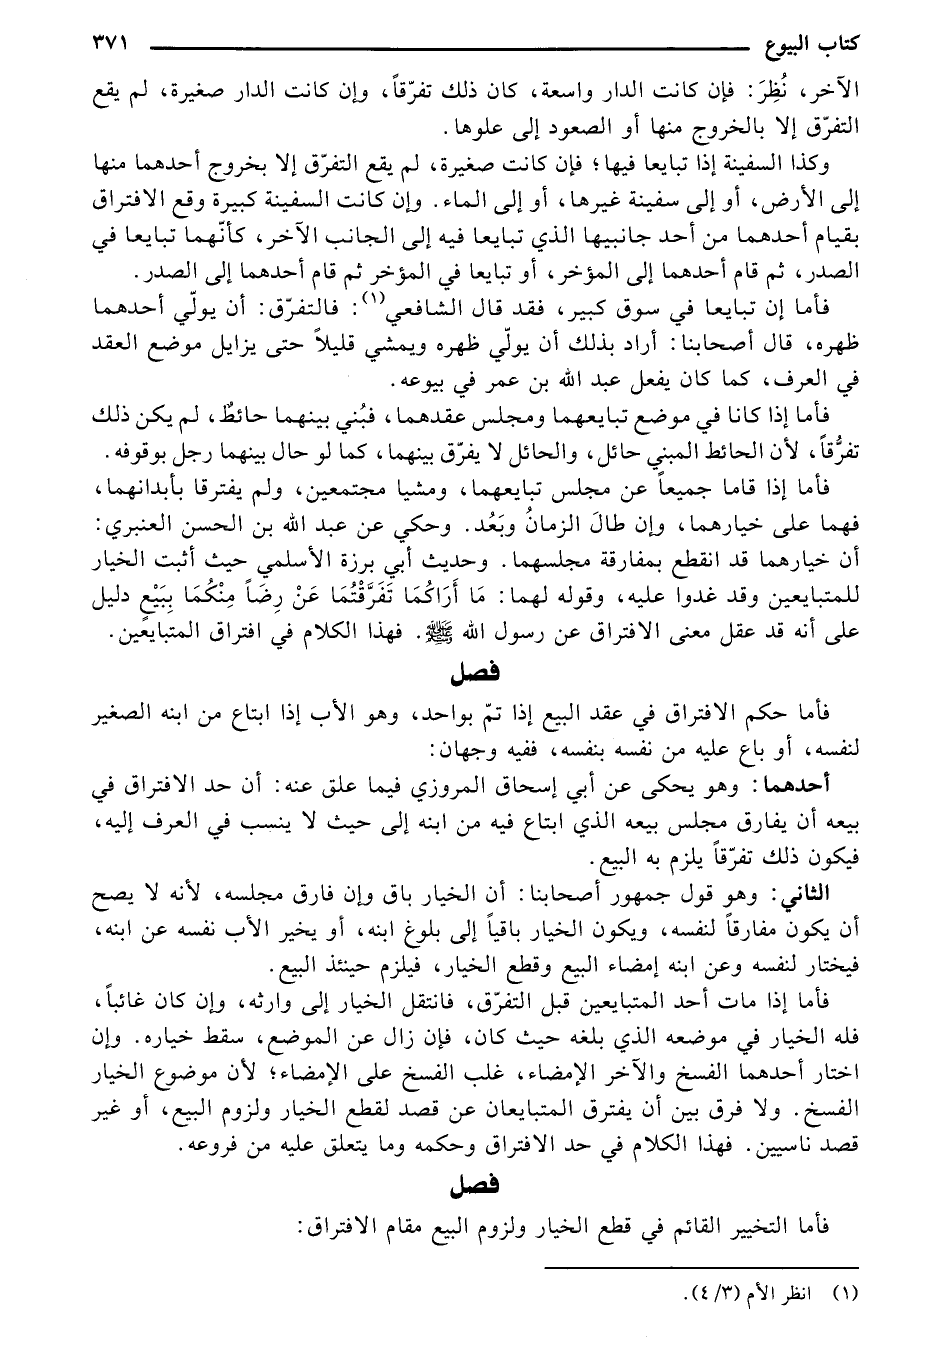 كتاب البيوع ٣٧١
الآخر، نُظِرَ: فإن كانت الدار واسعة، كان ذلك تفرّقاً، وإن كانت الدار صغيرة، لم يقع
التفرّق إلا بالخروج منها أو الصعود إلى علوها.
وكذا السفينة إذا تبايعا فيها؛ فإن كانت صغيرة، لم يقع التفرّق إلا بخروج أحدهما منها
إلى الأرض، أو إلى سفينة غيرها، أو إلى الماء. وإن كانت السفينة كبيرة وقع الافتراق
بقيام أحدهما من أحد جانبيها الذي تبايعا فيه إلى الجانب الآخر، كأنّهما تبايعا في
الصدر، ثم قام أحدهما إلى المؤخر، أو تبايعا في المؤخر ثم قام أحدهما إلى الصدر.
فأما إن تبايعا في سوق كبير، فقد قال الشافعي(١): فالتفرّق: أن يولّي أحدهما
ظهره، قال أصحابنا: أراد بذلك أن يولّي ظهره ويمشي قليلاً حتى يزايل موضع العقد
في العرف، كما كان يفعل عبد الله بن عمر في بيوعه.
فأما إذا كانا في موضع تبايعهما ومجلس عقدهما، فبُني بينهما حائطٌ، لم يكن ذلك
تفرُّقاً، لأن الحائط المبني حائل، والحائل لا يفرّق بينهما، كما لو حال بينهما رجل بوقوفه.
فأما إذا قاما جميعاً عن مجلس تبايعهما، ومشيا مجتمعين، ولم يفترقا بأبدانهما،
فهما على خيارهما، وإن طالَ الزمانُ وبَعُد. وحكي عن عبد الله بن الحسن العنبري:
أن خيارهما قد انقطع بمفارقة مجلسهما. وحديث أبي برزة الأسلمي حيث أثبت الخيار
للمتبايعين وقد غدوا عليه، وقوله لهما: مَا أَرَاكُمَا تَفَرَّقْتُمَا عَنْ رِضَاً مِنْكُمَا بِبَيْعٍ دليل
على أنه قد عقل معنى الافتراق عن رسول الله ﷺ. فهذا الكلام في افتراق المتبايعين.
فصل
فأما حكم الافتراق في عقد البيع إذا تمّ بواحد، وهو الأب إذا ابتاع من ابنه الصغير
لنفسه، أو باع عليه من نفسه بنفسه، ففيه وجهان:
أحدهما: وهو يحكى عن أبي إسحاق المروزي فيما علق عنه: أن حد الافتراق في
بيعه أن يفارق مجلس بيعه الذي ابتاع فيه من ابنه إلى حيث لا ينسب في العرف إليه،
فيكون ذلك تفرّقاً يلزم به البيع.
الثاني: وهو قول جمهور أصحابنا: أن الخيار باق وإن فارق مجلسه، لأنه لا يصح
أن يكون مفارقاً لنفسه، ويكون الخيار باقياً إلى بلوغ ابنه، أو يخير الأب نفسه عن ابنه،
فيختار لنفسه وعن ابنه إمضاء البيع وقطع الخيار، فيلزم حينئذ البيع.
فأما إذا مات أحد المتبايعين قبل التفرّق، فانتقل الخيار إلى وارثه، وإن كان غائباً،
فله الخيار في موضعه الذي بلغه حيث كان، فإن زال عن الموضع، سقط خياره. وإن
اختار أحدهما الفسخ والآخر الإمضاء، غلب الفسخ على الإمضاء؛ لأن موضوع الخيار
الفسخ. ولا فرق بين أن يفترق المتبايعان عن قصد لقطع الخيار ولزوم البيع، أو غير
قصد ناسيين. فهذا الكلام في حد الافتراق وحكمه وما يتعلق عليه من فروعه.
فصل
فأما التخيير القائم في قطع الخيار ولزوم البيع مقام الافتراق:
(١) انظر الأم (٣/ ٤).